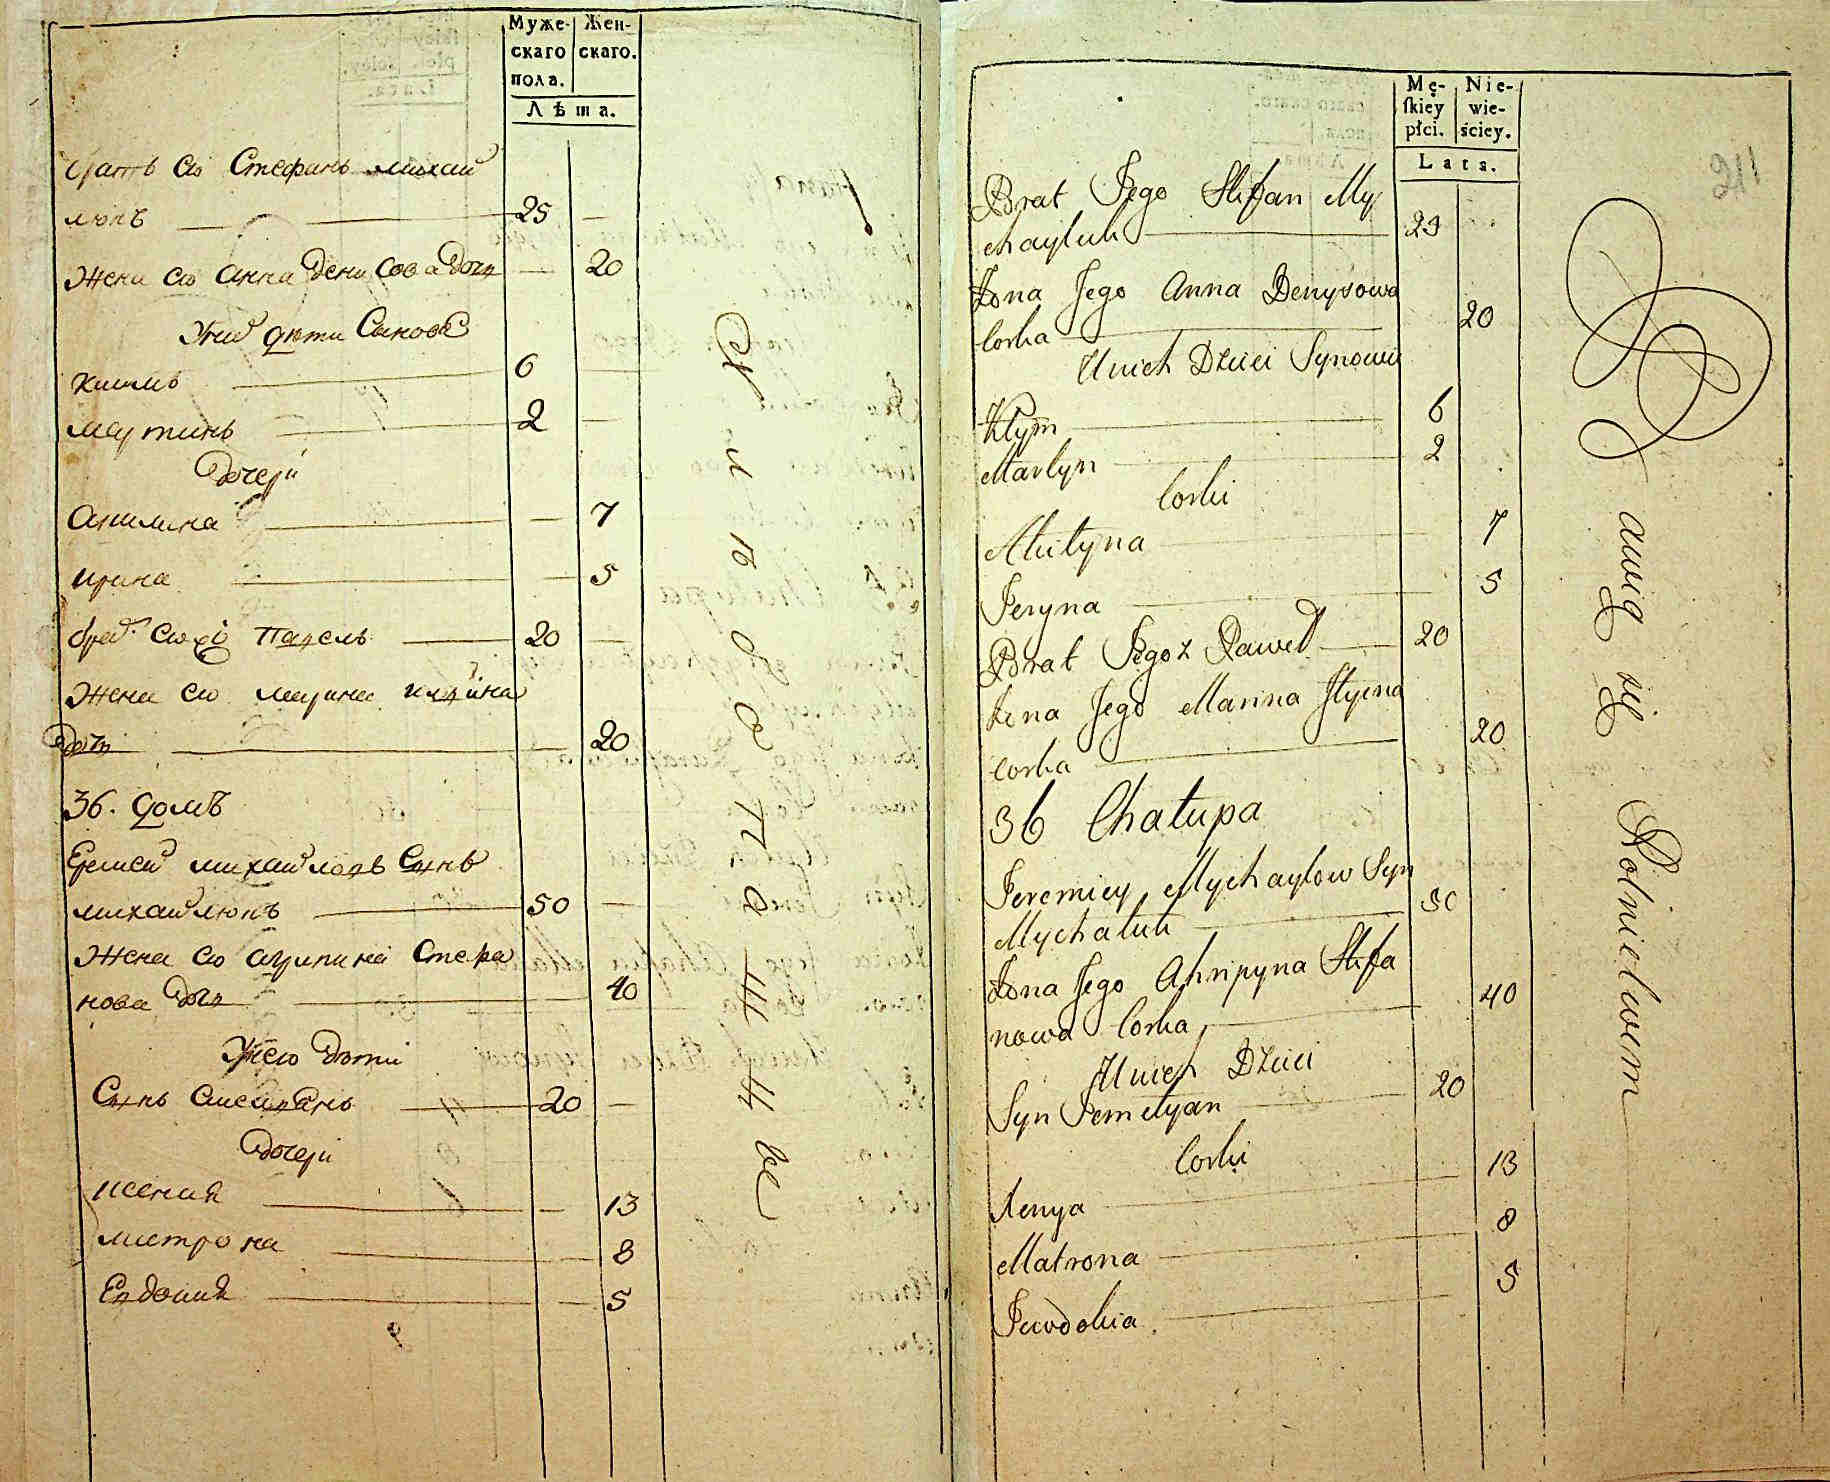 Муже-
скаго
пола.
Жен-
скаго.
Лѣта.
братъ єго Стефанъ михай
люкъ 25
Жена єго анна Денисова дочь 20
У них дѣти Синовє
климъ 6
мартинъ 2
Дочери
Акилина 7
ирина 5
брат єго Павелъ 20
Жена єго марина илїина
дочь 20
36. домъ
Єремей михайловъ Синъ
михайлюкъ 50
Жена єго агрипина Стефа
нова дочь 40
У него дети
Синъ 20
Дочери
ксения 13
матрона 8
Евдокия 5
Mę-
skiey
płci.
Nie-
wie-
ściey.
Lata.
241
Brat Jego Stefan My
chayluk 29
Żona Jego Anna Denysowa
Corka 20
U nich Dzieci Synowie
Kłym 6
Martyn 2
Corki
Akilyna 7
Jeryna 5
Brat Jegoż Paweł 20
Żona Jego Marina Ilyina
Corka 20
36 Chałupa
Jeremiey Mychayłow Syn
Mychaluk 50
Żona Jego Ahripyna Stefa
nowa Corka 40
U nich Dzieci
Syn Jemelyan 20
Corki
Xenya 13
Matrona 8
Jewdokia 5
bawią się Rolnictwem